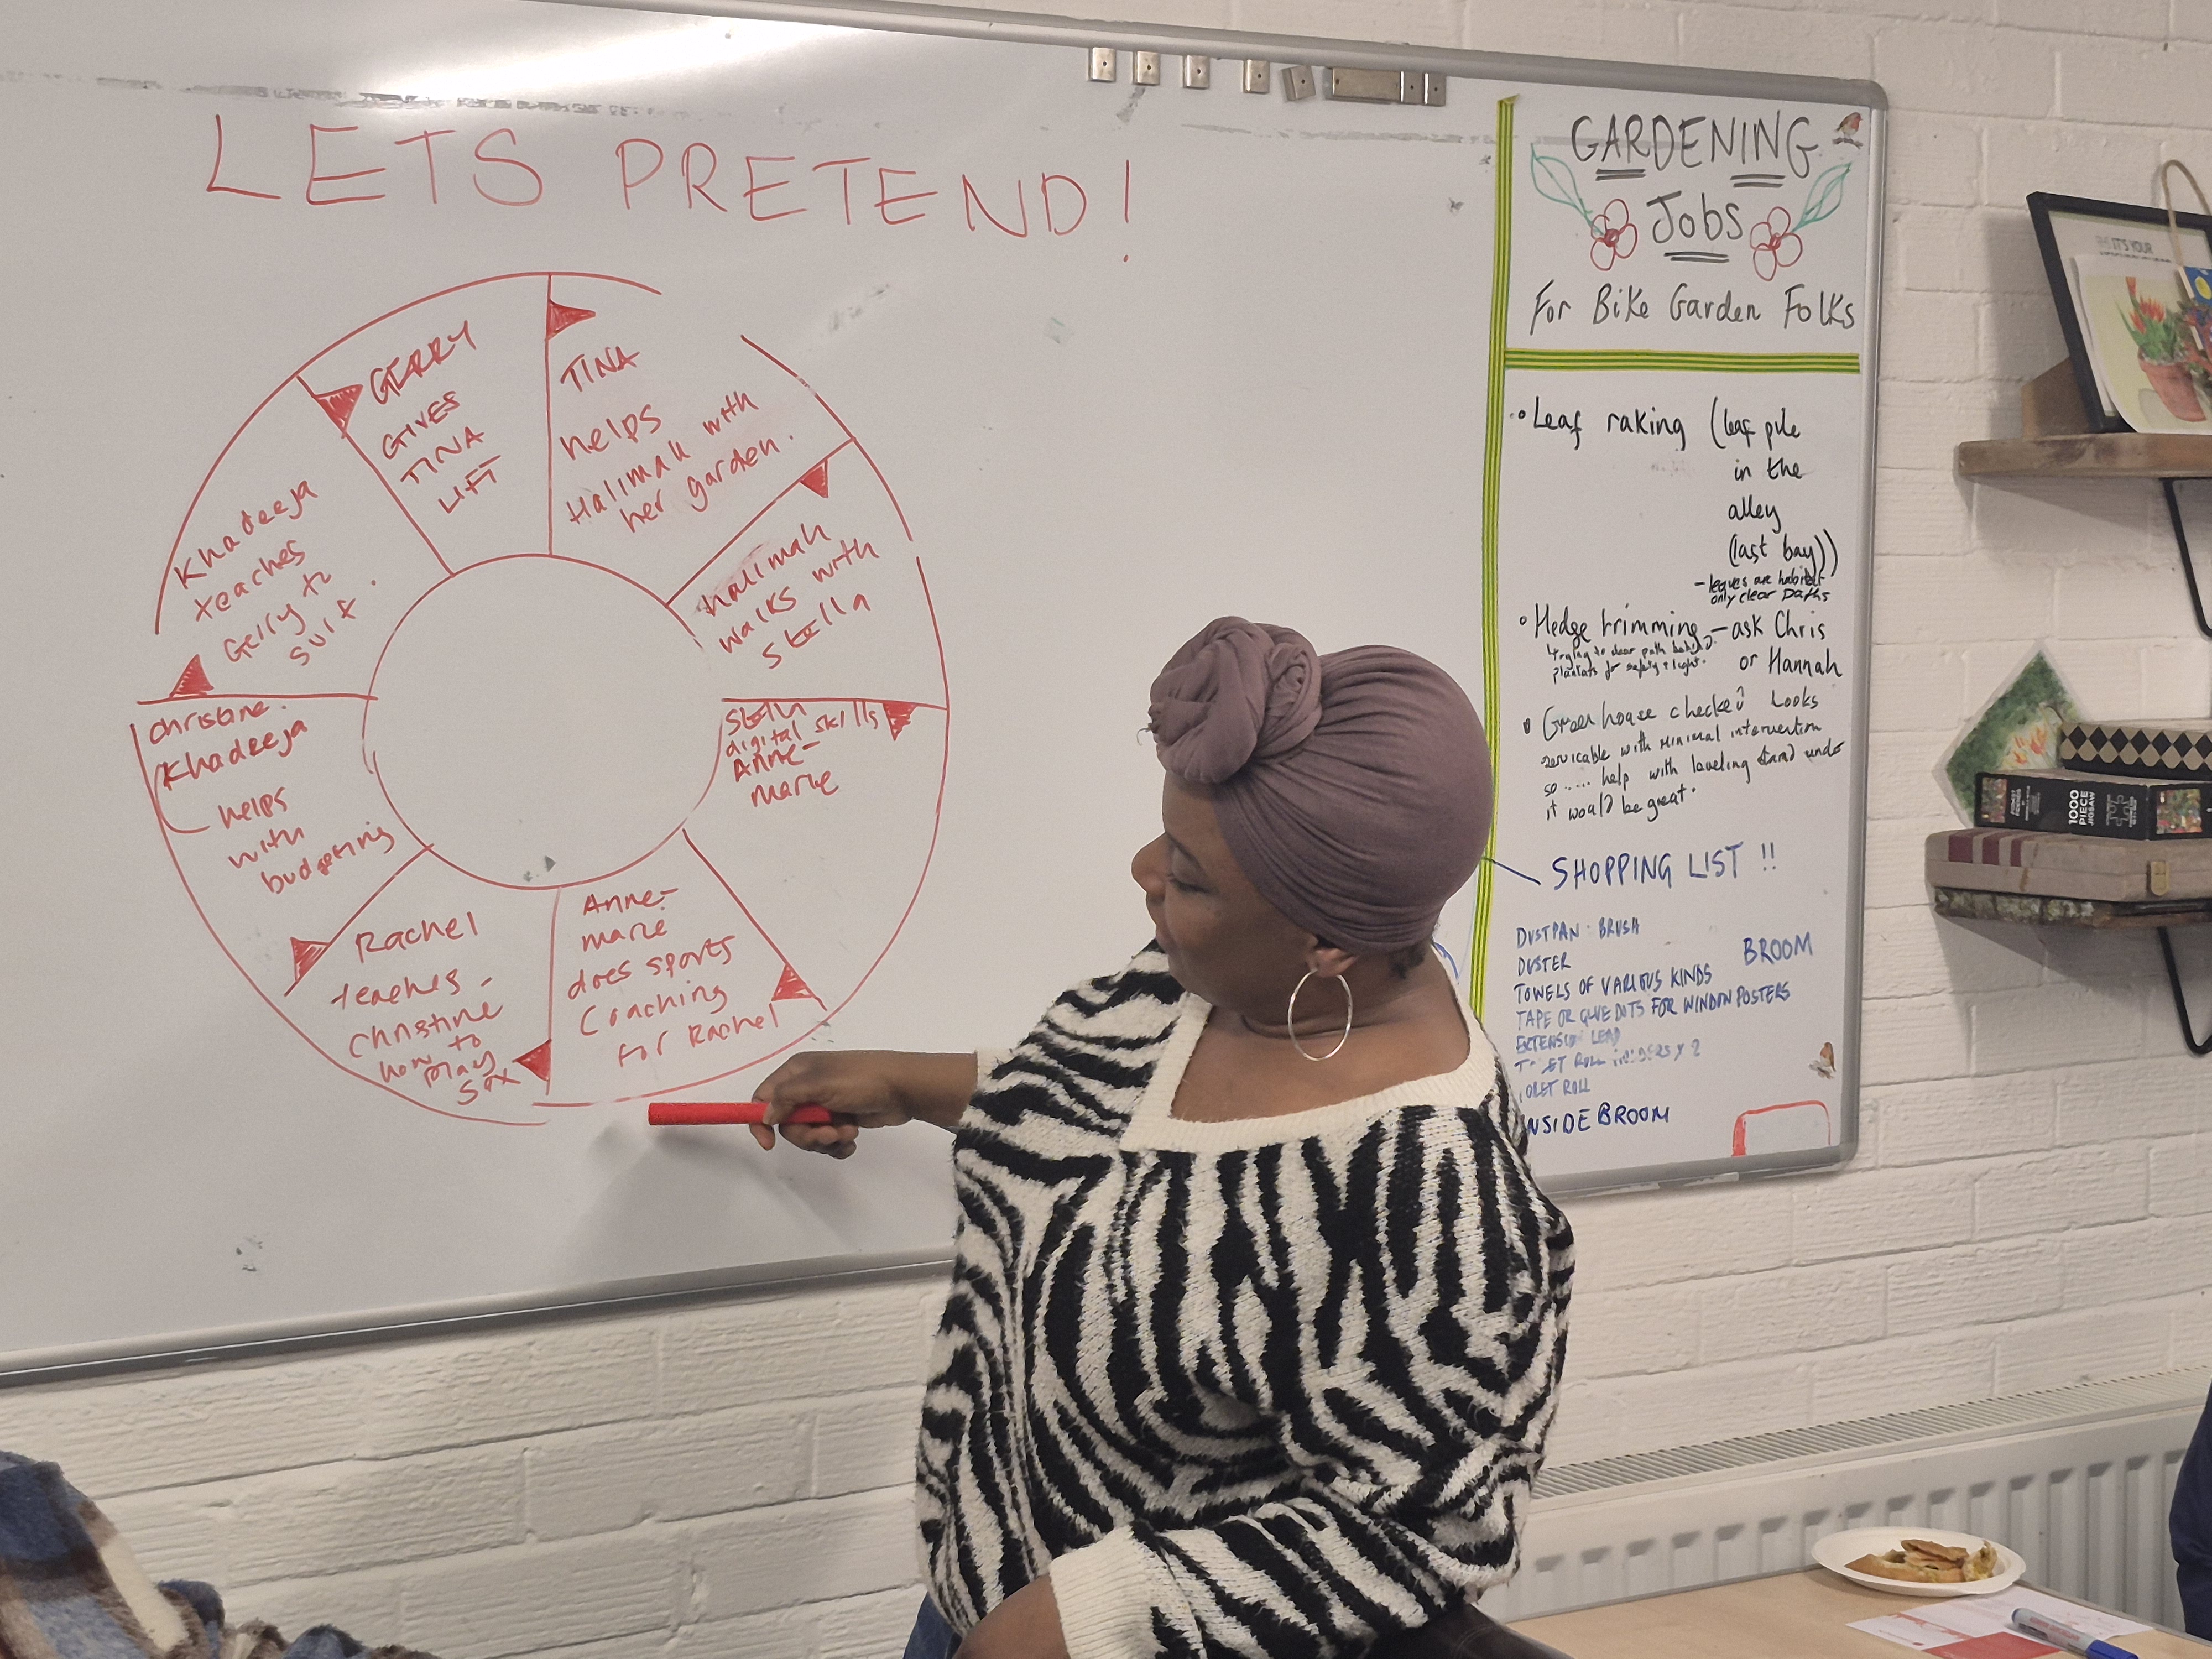 LETS PRETEND!
GERRY
GIVES
TINA
LIFT
TINA
helps
Halimah with
her garden.
halimah
walks with
Stella
Stella
digital skills
Anne-
marie
Anne-
marie
does sports
Coaching
for Rachel
Rachel
teaches
christine
how to
play
sax
christine.
Khadeeja
helps
with
budgeting
Khadeeja
teaches
Gerry to
surf.
GARDENING
JOBS
For Bike Garden Folks
• Leaf raking (leaf pile
in the
alley
(last bay))
- leaves are habitat
only clear paths
• Hedge trimming - ask Chris
or Hannah
trying to clear path behind
planters for safety + light.
• Greenhouse checked Looks
servicable with minimal intervention
so ..... help with leveling stand under
it would be great.
SHOPPING LIST !!
DUSTPAN BRUSH
DUSTER
BROOM
TOWELS OF VARIOUS KINDS
TAPE OR GLUE DOTS FOR WINDOW POSTERS
EXTENSION LEAD
ROLL
ROLL
INSIDE BROOM
IT'S YOUR
1000
PIECE
JIGSAW